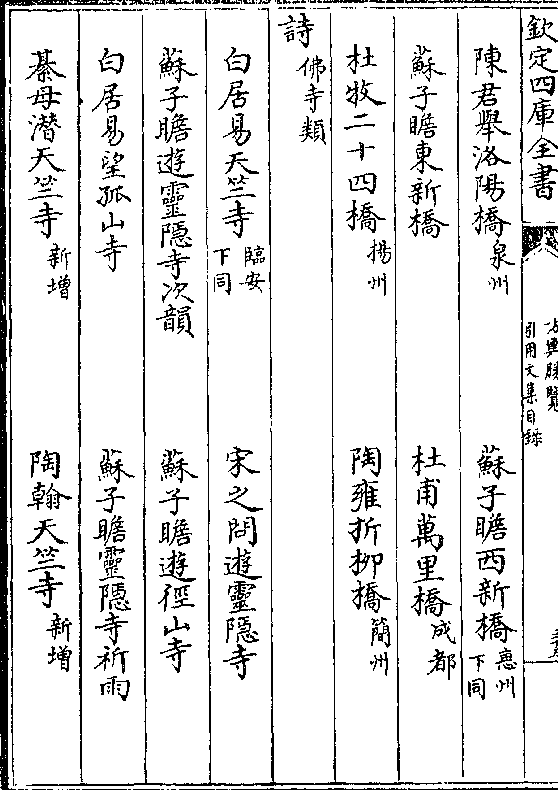 欽定四庫全書
方輿勝覽
引用文集目錄
陳君舉洛陽橋泉州 蘇子瞻西新橋惠州下同
蘇子瞻東新橋 杜甫萬里橋成都
杜牧二十四橋揚州 陶雍折柳橋簡州
詩佛寺類
白居易天竺寺臨安下同 宋之問遊靈隠寺
蘇子瞻遊靈隠寺次韻 蘇子瞻遊徑山寺
白居易望孤山寺 蘇子瞻靈隠寺祈雨
綦母潜天竺寺新增 陶翰天竺寺新增